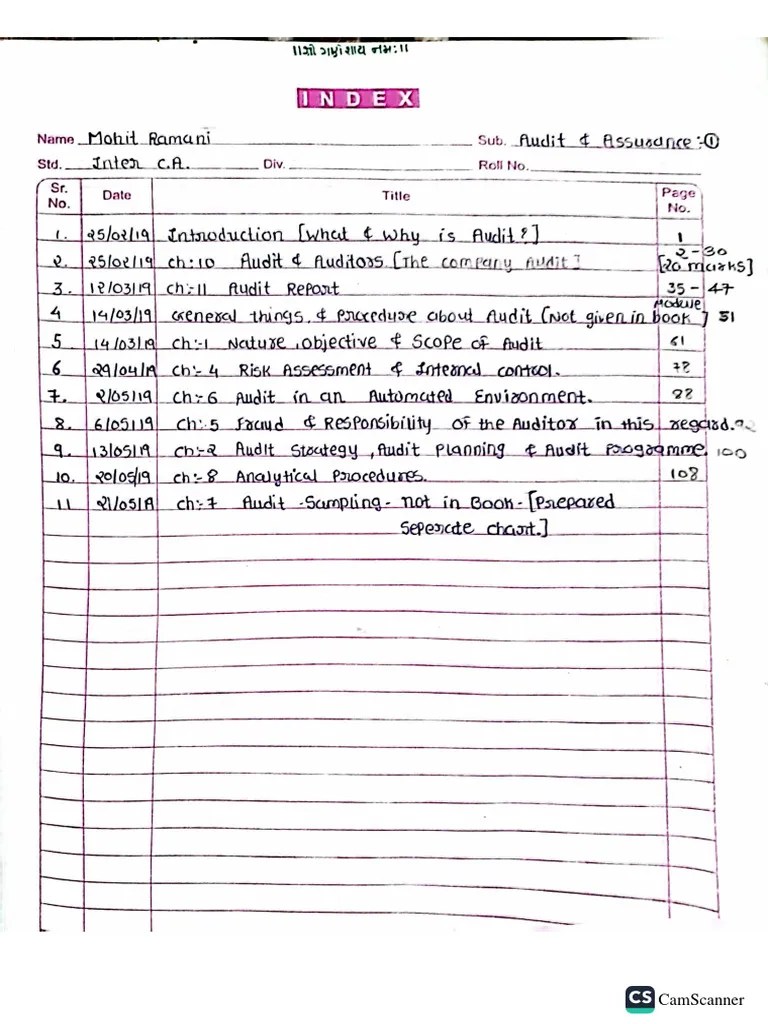 ॥શ્રી ગણેશાય નમઃ॥
INDEX
Name Mohit Ramani Sub. Audit & Assurance :-①
Std. Inter C.A. Div. Roll No.
Sr. No. Date Title Page No.
1. 25/02/19 Introduction [What & Why is Audit?] 1
2. 25/02/19 ch:10 Audit & Auditors [The company Audit] 2-30 [20 marks]
3. 12/03/19 ch:-11 Audit Report 35-47
4 14/03/19 General things & Procedure about Audit (Not given in module book] 51
5 14/03/19 ch:-1 Nature, objective & Scope of Audit 61
6 29/04/19 ch:- 4 Risk Assessment & Internal control. 78
7. 2/05/19 ch:-6 Audit in an Automated Environment. 88
8. 6/05/19 ch:5 Fraud & Responsibility of the Auditor in this regard.
9. 13/05/19 ch:-2 Audit Strategy, Audit Planning & Audit Programme. 100
10. 20/05/19 ch:-8 Analytical Procedures. 108
11 21/05/19 ch:-7 Audit -Sampling- not in Book-[Prepared
Seperate chart.]
CS CamScanner